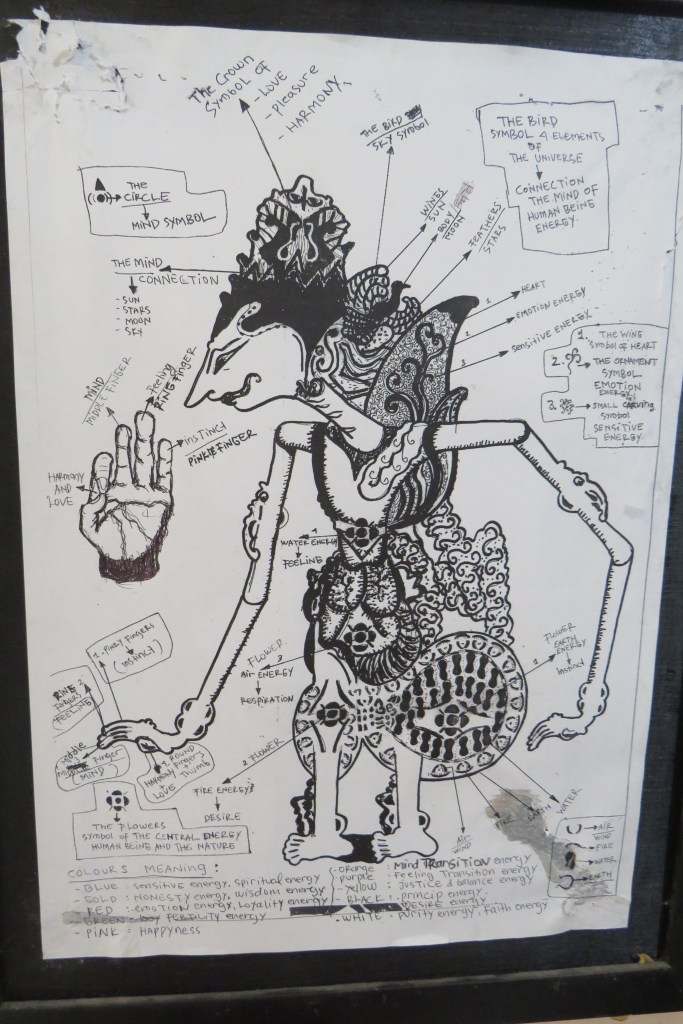 The Crown
Symbol of
- LOVE
- Pleasure
- HARMONY
THE BIRD
SKY SYMBOL
THE BIRD
SYMBOL 4 ELEMENTS
OF
THE UNIVERSE
CONNECTION
THE MIND OF
HUMAN BEING
ENERGY.
THE
CIRCLE
MIND SYMBOL
WINGS
SUN
BODY/
MOON
FEATHERS
STARS
THE MIND
CONNECTION
- SUN
- STARS
- MOON
- SKY
1 HEART
2 EMOTION ENERGY
3 SENSITIVE ENERGY
1. THE WING
SYMBOL OF HEART
2. THE ORNAMENT
SYMBOL
EMOTION
ENERGY
3. SMALL CARVING
SYMBOL
SENSITIVE
ENERGY.
MIND
MIDDLE FINGER
Feeling
RING FINGER
instinct
PINKIE FINGER
HARMONY
AND
LOVE
4
WATER ENERGY
FEELING
FLOWER
3
AIR ENERGY
RESPIRATION
FLOWER
1 EARTH
ENERGY
instinct
1. PINKY FINGERS
(instinct)
RING 2
FINGERS
FEELING
Middle
Finger
(MIND)
HARMONY
LOVE
Thumb
2 FLOWER
FIRE ENERGY
DESIRE
THE FLOWERS
SYMBOL OF THE CENTRAL ENERGY
HUMAN BEING AND THE NATURE
AIR
WIND
FIRE
EARTH
WATER
AIR
WIND
FIRE
WATER
EARTH
COLOURS MEANING :
- BLUE : sensitive energy, spiritual energy
- GOLD : HONESTY energy, wisdom energy
- RED : emotion energy, Loyality energy
- GREEN FERTILITY energy
- PINK = HAPPYNESS
- orange : Mind TRANSITION energy
- purple : Feeling Transition energy
- yellow : Justice & balance energy
- BLACK : princip energy
DESIRE energy
- WHITE : PURITY energy, faith energy